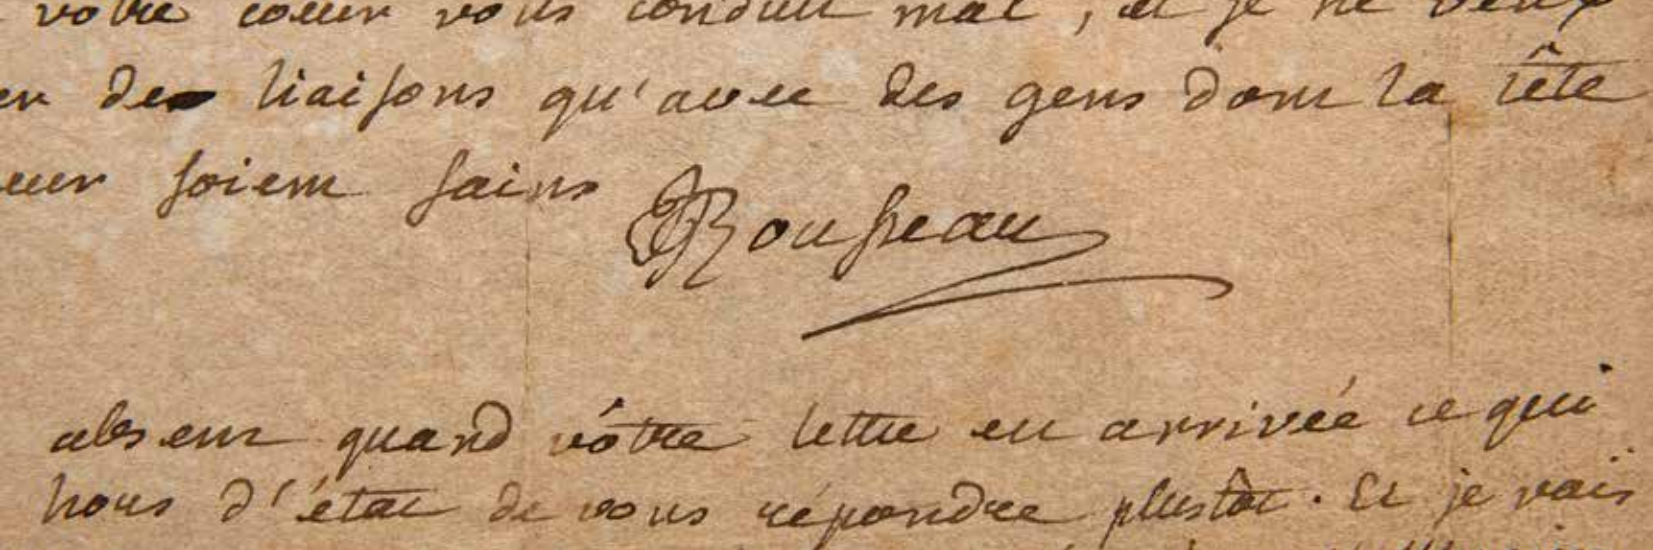 votre coeur vous conduit mal, et je ne veux
er des liaisons qu'avec des gens dont la tête
eur soient sains
Rousseau
absent quand vôtre lettre est arrivée ce qui
hors d'état de vous répondre plustôt. Et je vais